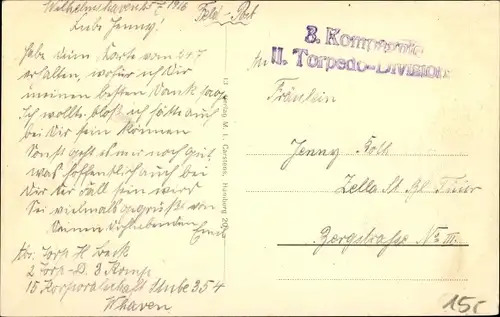 Wilhelmshaven 5 7 1916
Feld-Post
Liebe Jenny!
Habe Deine Karte vom 2 4 7
erhalten, wofür ich Dir
meinen besten Dank sage
Ich wollte bloß ich hätte auch
bei Dir sein können
Sonst geht es mir noch gut
was hoffentlich auch bei
Dir der Fall sein wird
Sei vielmals gegrüßt von
Deinem Dichliebenden
Abs. Torp H
2 Torp-D. 3 Komp
15 Korporalschaft Stube 354
W'haven
Verlag M. L. Carstens, Hamburg
3. Kompanie
II. Torpedo-Division
An
Fräulein
Jenny Roth
Zella St. Bl. Thür
Bergstrasse No III.
15,-